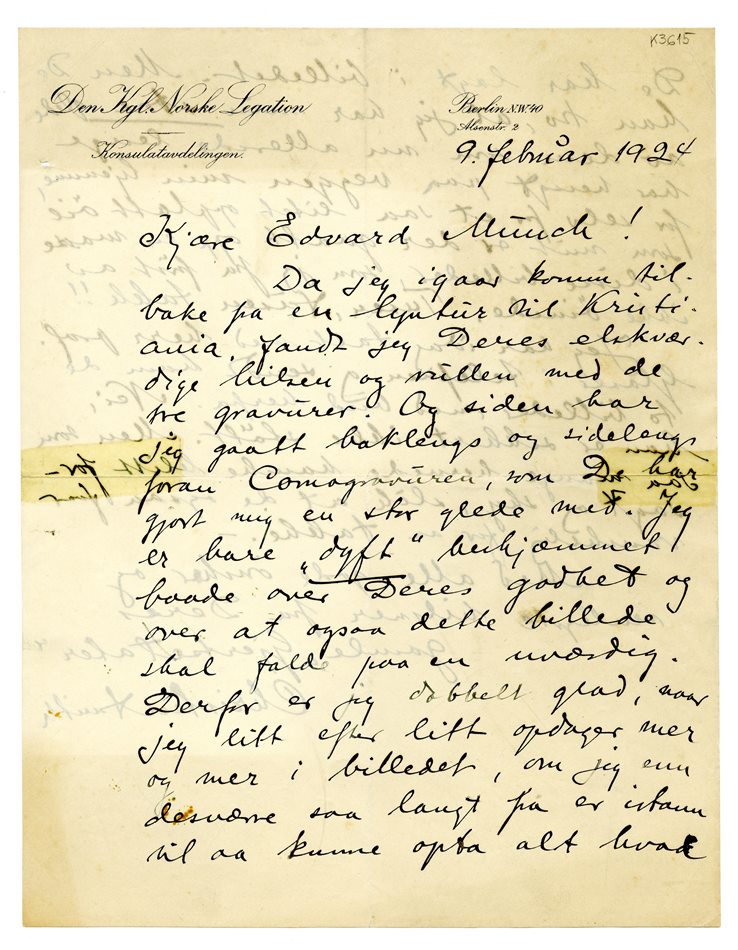 K3615
Den Kgl. Norske Legation
Konsulatavdelingen.
Berlin N.W. 40
Alsenstr. 2
9. februar 1924
Kjære Edvard Munch!
Da jeg igaar komm til-
bake på en lyntur til Kristi-
ania, fandt jeg Deres elskvær-
dige hilsen og rullen med de
tre gravurer. Og siden har
jeg gaatt baklengs og sidelengs
foran Comogravuren, som De har
gjort mig en stor glede med. Jeg
er bare „dypt“ beskjæmmet
baade over Deres godhet og
over at ogsaa dette billede
skal falde paa en uværdig.
Derfor er jeg dobbelt glad, naar
jeg litt efter litt opdager mer
og mer i billedet, om jeg enn
desværre saa langt fra er istann
til aa kunne opta alt hvad